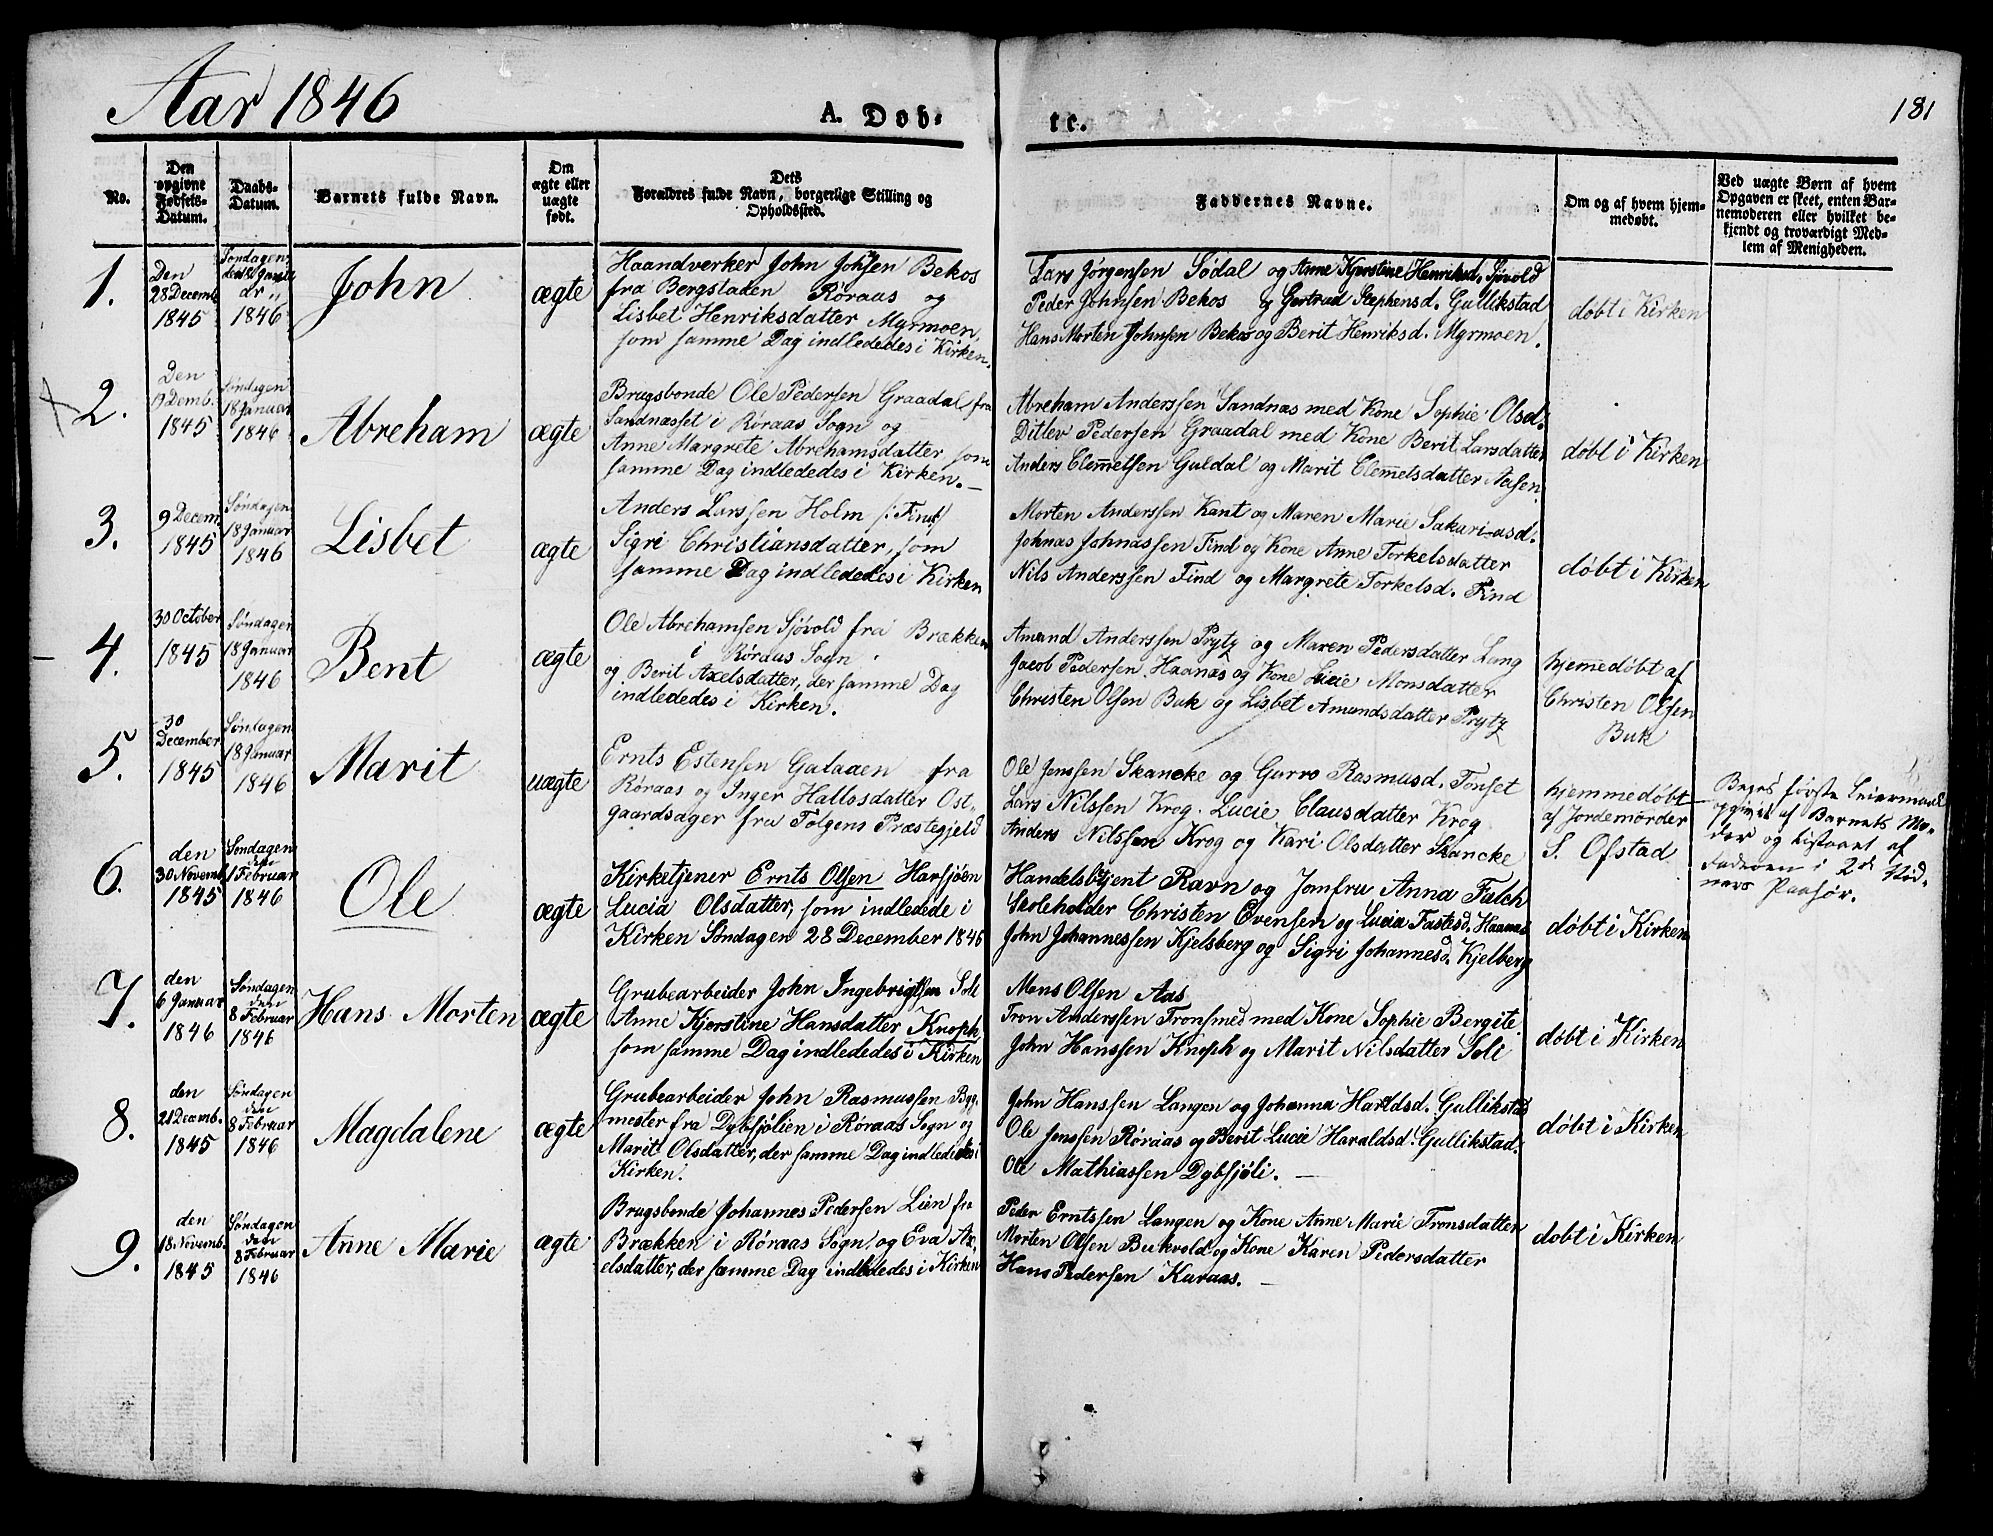 Aar 1846
A. Døb-
te.
181
No.
Den opgivne Fødsels-Datum.
Daabs-Datum.
Barnets fulde Navn.
Om ægte eller uægte født.
Dets Forældres fulde Navn, borgerlige Stilling og Opholdssted.
Faddernes Navne.
Om og af hvem hjem-
medøbt.
Ved uægte Børn af hvem
Opgaven er skeet, enten Bar-
nemoderen eller hvilket be-
kjendt og troværdigt Med-
lem af Menigheden.
1.
Den
28 Decemb.
1845
Søndagen
1846
John
ægte
Haandverker John Johsen Bekos
fra Bergstaden Röraas og
Lisbet Henriksdatter Myrmoen,
som samme Dag indlededes i Kirken.
Lars Jörgensen Södal og Anne Kjerstine Henriksd. Sjövold
Peder Johnsen Bekos og Gertrud Stephensd. Gullikstad
Hans Morten Johnsen Bekos og Berit Henriksd. Myrmoen.
døbt i Kirken
2.
Den
9 Decmb.
1845
Søndagen
18 Januar
1846
Abreham
ægte
Brugsbonde Ole Pedersen Graadal fra
Sandnæsset i Röraas Sogn og
Anne Margrete Abrehamsdatter som
samme Dag indlededes i Kirken.—
Abreham Anderssen Sandnæs med Kone Sophie Olsd.
Ditlev Pedersen Graadal med Kone Berit Larsdatter
Anders Clemetsen Guldal og Marit Clemetsdatter Aasen
døbt i Kirken
3.
9 Decem.
1845
Søndagen
18 Januar
1846
Lisbet
ægte
Anders Larssen Holm /: Find/
Sigri Christiansdatter, som
samme Dag indlededes i Kirken
Morten Anderssen Kant og Maren Marie Sakariasd.
Johnas Johnassen Find og Kone Anne Torkelsdatter
Nils Anderssen Find og Margrete Torkelsd. Find
døbt i Kirken
4.
30 October
1845
Søndagen
18 Januar
1846
Bent
ægte
Ole Abrehamsen Sjövold fra Brækken
i Röraas Sogn
og Berit Axelsdatter, der samme Dag
indlededes i Kirken.
Amund Anderssen Prytz og Maren Pedersdatter Lang
Jacob Pedersen Haanæs og Kone Lucie Monsdatter
Christen Olsen Buk og Lisbet Amundsdatter Prytz
hjemmedøbt af
Christen Olsen
Buk
5.
30
December
1845
Søndagen
18 Januar
1846
Marit
uægte
Ernts Estensen Galaaen fra
Röraas og Inger Hallosdatter Ost-
gaardsager fra Tolgens Præstegjeld
Ole Jenssen Skancke og Gurro Rasmusd. Tonset
Lars Nilssen Krog. Lucie Clausdatter Krog
Anders Nilssen Krog og Kari Olsdatter Skancke
hjemmedøbt
af Jordemorder
S. Ofstad
Begges første Leiermaal
opgivet af Barnets Mo-
der og tilstaaet af
Faderen i 2de Vid-
ners Paahør.
6.
den
30 Novemb.
1845
Søndagen
den
1 Februar
1846
Ole
ægte
Kirketjener Ernts Olsen Harsjöen
Lucia Olsdatter, som indledede i
Kirken Søndagen 28 December 1845
Handelsbtjent Ravn og Jomfru Anna Falch
Skoleholder Christen Evensen og Lucia Fastesd. Haanæs
John Johannessen Kjelsberg og Sigri Johannesd. Kjelberg
døbt i Kirken
7.
den
6 Januar
1846
Søndagen
den
8 Februar
1846
Hans Morten
ægte
Grubearbeider John Ingebrigtsen Soli
Anne Kjerstine Hansdatter Knoph
som samme Dag indlededes i Kirken
Mons Olsen Aas
Tron Anderssen Tronsmed med Kone Sophie Bergite
John Hanssen Knoph og Marit Nilsdatter Soli
døbt i Kirken
8.
den
21 Decemb.
1845
Søndagen
den
8 Februar
1846
Magdalene
ægte
Grubearbeider John Rasmussen Byg-
mester fra Dybsjölien i Röraas Sogn og
Marit Olsdatter, der samme Dag indlededes i
Kirken.
John Hanssen Langen og Johanna Haraldsd. Gullikstad
Ole Jenssen Röraas og Berit Lucie Haraldsd. Gullikstad.
Ole Mathiassen Dybsjöli. —
døbt i Kirken
9.
den
18 Novemb.
1845
Søndagen
den
8 Februar
1846
Anne Marie
ægte
Brugsbonde Johannes Pedersen Lien fra
Brækken i Röraas Sogn og Eva Ax-
elsdatter, der samme Dag indlededes i Kirken
Peder Erntssen Langen og Kone Anne Marie Tronsdatter
Morten Olsen Bukvold og Kone Karen Pedersdatter
Hans Pedersen Kuraas. —
døbt i Kirken